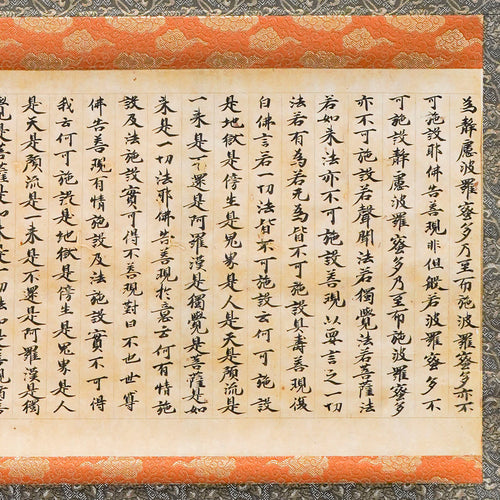 為靜慮波羅蜜多乃至布施波羅蜜多亦不
可施設耶佛告善現非但般若波羅蜜多不
可施設靜慮波羅蜜多乃至布施波羅蜜多
亦不可施設若聲聞法若獨覺法若菩薩法
若如來法亦不可施設善現以要言之一切
法若有為若无為皆不可施設具壽善現復
白佛言若一切法皆不可施設云何可施設
是地獄是傍生是鬼界是人是天是預流是
一來是不還是阿羅漢是獨覺是菩薩是如
來是一切法耶佛告善現於意云何有情施
設及法施設實可得不善現對曰不也世尊
佛告善現有情施設及法施設實不可得
我云何可施設是地獄是傍生是鬼界是人
是天是預流是一來是不還是阿羅漢是獨